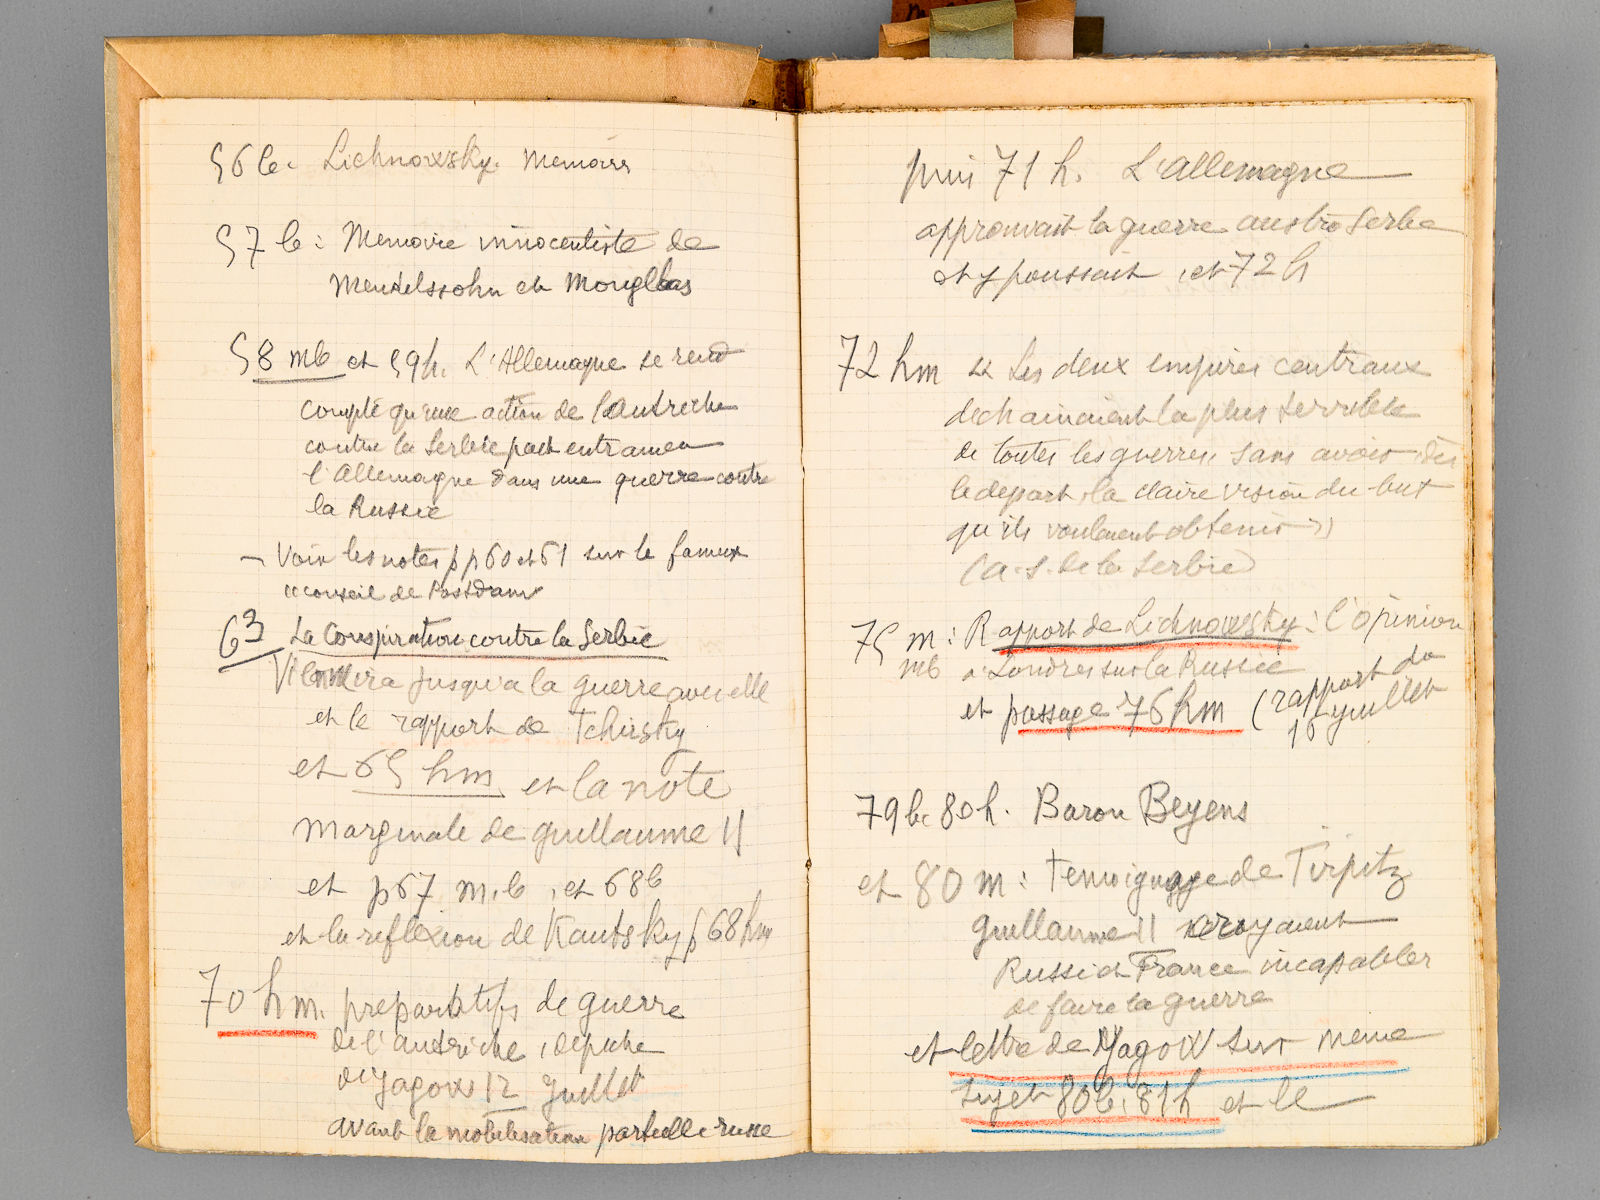 56 b. Lichnowsky. Memoires
57 b : Memoire innocentiste de
Mendelssohn et Montgelas
58 mb et 59h. L'Allemagne se rend
compte qu'une action de l'Autriche
contre la Serbie peut entrainer
l'Allemagne dans une guerre contre
la Russie
– Voir les notes pp 60 et 61 sur le fameux
"conseil de Postdam
63 La Conspiration contre la Serbie
ira jusqu'a la guerre avec elle
et le rapport de Tchirsky
et 65 hm et la note
marginale de Guillaume II
et p67 m.b, et 68b
et la reflexion de Kautsky p 68 hm
70 hm. preparatifs de guerre
de l'autriche, depeche
de Jagow 12 Juillet
avant la mobilisation partielle russe
puis 71 h. L'Allemagne
approuvait la guerre austro Serbe
et y poussait, et 72 h
72 hm « Les deux empires centraux
dechainaient la plus terrible
de toutes les guerres, sans avoir, dès
le depart, la claire vision du but
qu'ils voulaient obtenir »
(a.s. de la Serbie)
75 m : Rapport de Lichnowsky : l'opinion
mb a Londres sur la Russie
et passage 76 hm (rapport du
16 Juillet
79 b. 80 h. Baron Beyens
et 80 m : temoignage de Tirpitz
Guillaume II croyaient
Russie et France incapables
de faire la guerre
et lettre de Yagow sur meme
sujet 80b, 81h et le